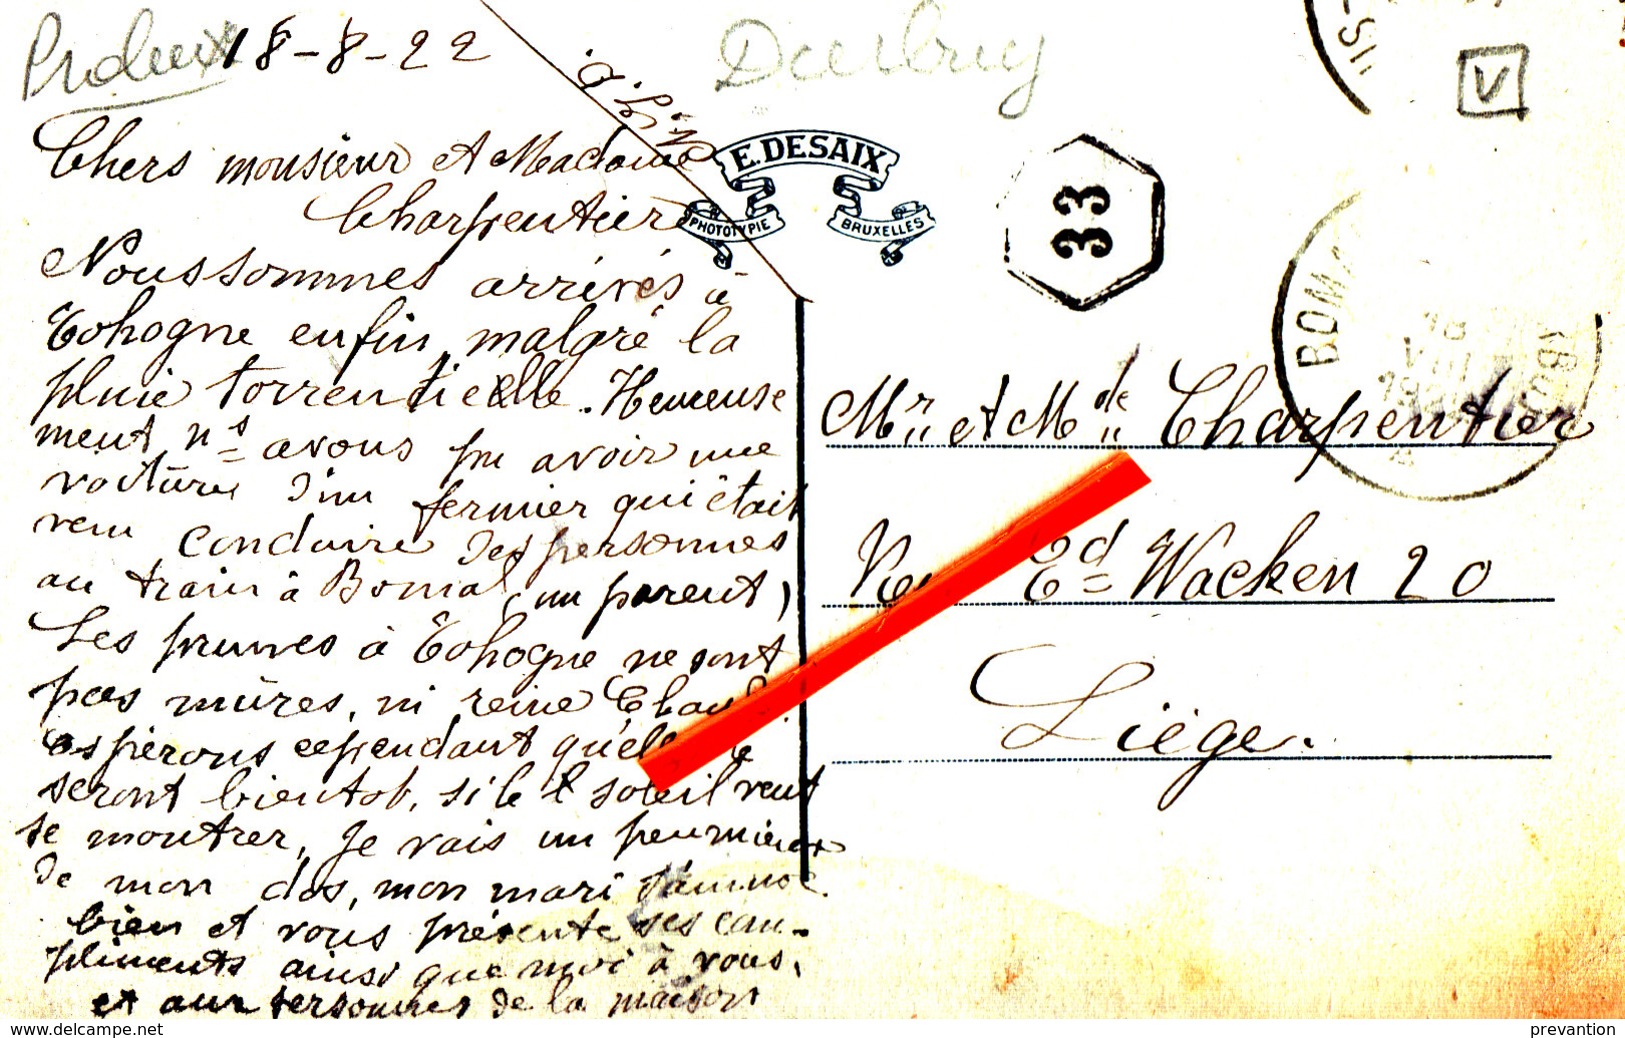 18-8-22
Durbuy
V
Chers monsieur et Madame
Charpentier
E. DESAIX
PHOTOTYPIE
BRUXELLES
33
BOM
18
VIII
Nous sommes arrivés à
Tohogne enfin, malgré la
pluie torrentielle. Heureuse
ment, ns avons pu avoir une
voiture d'un fermier qui était
venu conduire des personnes
au train à Bomal, (un parent)
Les prunes à Tohogne ne sont
pas mûres, ni reine Claude
espérons cependant qu'elles le
seront bientot, si le soleil veut
se montrer, Je vais un peu mieux
de mon dos, mon mari s'amuse
bien et vous présente ses com-
pliments ainsi que moi à vous,
et aux personnes de la maison
Mr et Mde Charpentier
Ed Wacken 20
Liége.
www.delcampe.net
prevantion